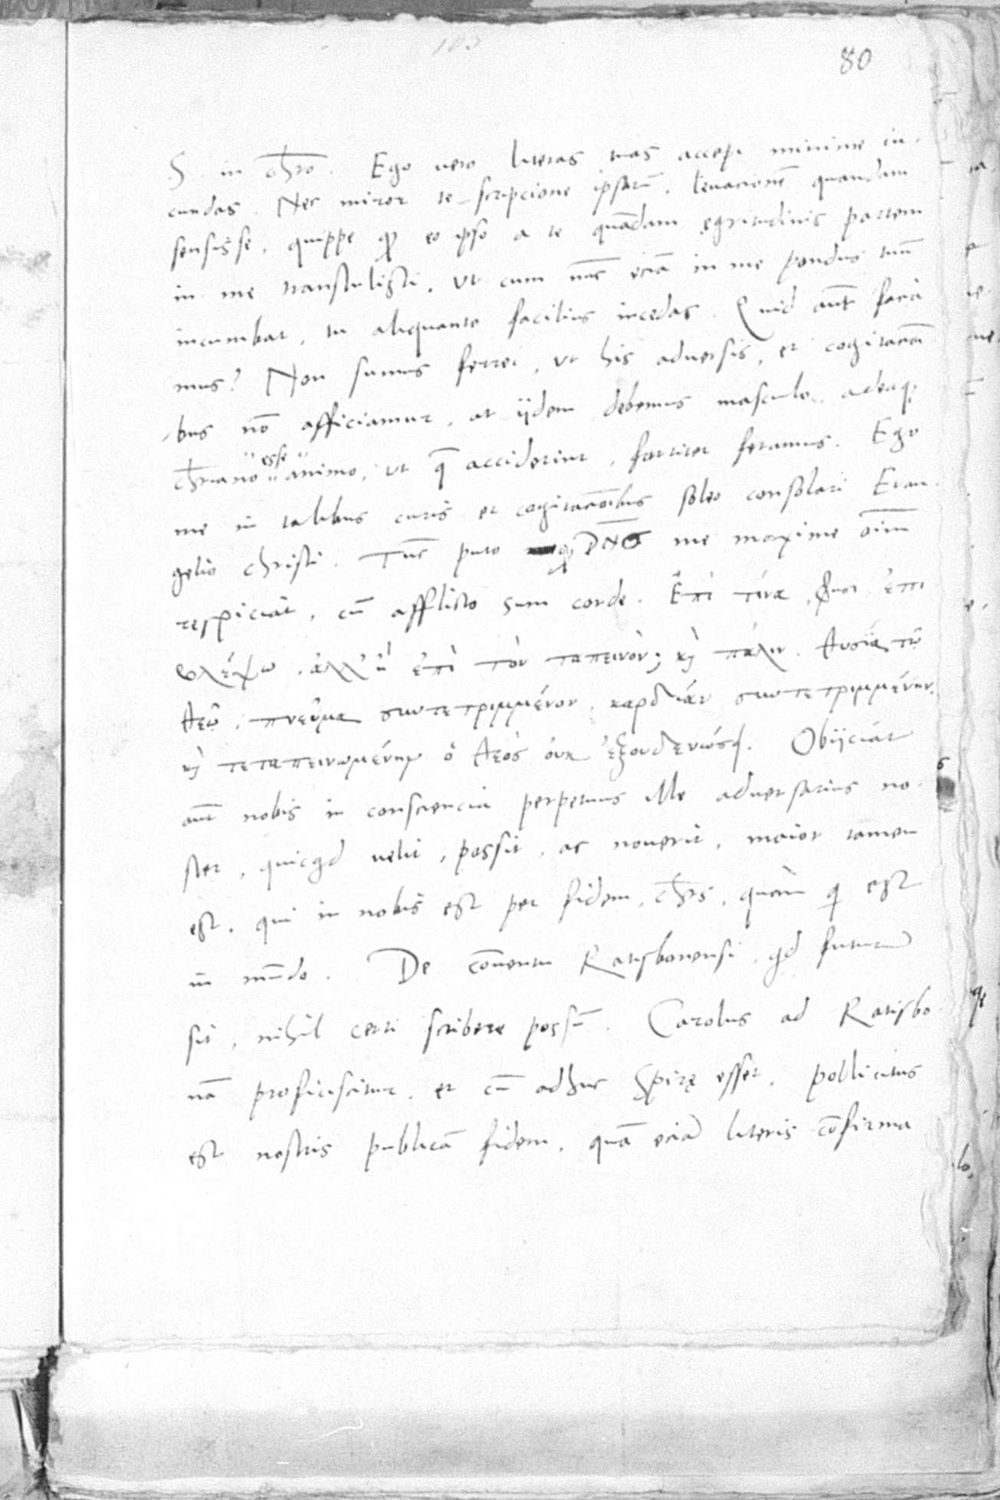 103
80
S. in Chr̄o. Ego vero literas tuas accepi minime iu-
cundas. Nec miror te scripcione ipsarū, levacionē quandam
sensisse, quippe qđ eo ipso a te quādam egritudinis partem
in me transtulisti, ut cum nūc eciā in me pondus tuū
incumbat, tu aliquanto facilius incedas. Quid aut̄ facia
mus? Non sumus ferrei, ut his adversis, et cogitacioni
bus nō afficiamur, at ijdem debemus masculo, adeoq;
Chr̄iano esse animo, ut q̄ acciderint, fortiter feramus. Ego
me in talibus curis et cogitacionibus soleo consolari Evan
gelio Christi. Tūc puto qđ DN̄S me maxime oīm
respiciat, cū afflicto sum corde. Ἐπὶ τίνα, φησι ἐπι
βλέψω, ἀλλ' ἢ ἐπὶ τὸν ταπεινόν; κỳ πάλιν. θυσία τῶ
θεῶ, πνεῦμα συντετριμμένον, καρδίαν συντετριμμένην,
κỳ τεταπεινωμένην ὁ θεὸς οὐκ ἐξουδενώσῃ. Obijciat
aut̄ nobis in consciencia perpetuus ille adversarius no-
ster, quicqd velit, possit, ac noverit, maior tamen
est, qui in nobis est per fidem, Chr̄s, quam q̇ est
in mūdo. De cōventu Ratisbonensi, qđ futurū
sit, nihil certi scribere possū. Carolus ad Ratisbo
nā proficiscitur, et cū adhuc Spirę esset, pollicitus
est nostris publicā fidem, quā eciā literis cōfirma